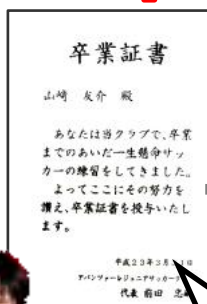 卒業証書
山崎 友介 殿
あなたは当クラブで、卒業
までのあいだ一生懸命サッ
カーの練習をしてきました。
よってここにその努力を
讃え、卒業証書を授与いたし
ます。
平成23年3月
アバンツァーレジュニアサッカー
代表 前田